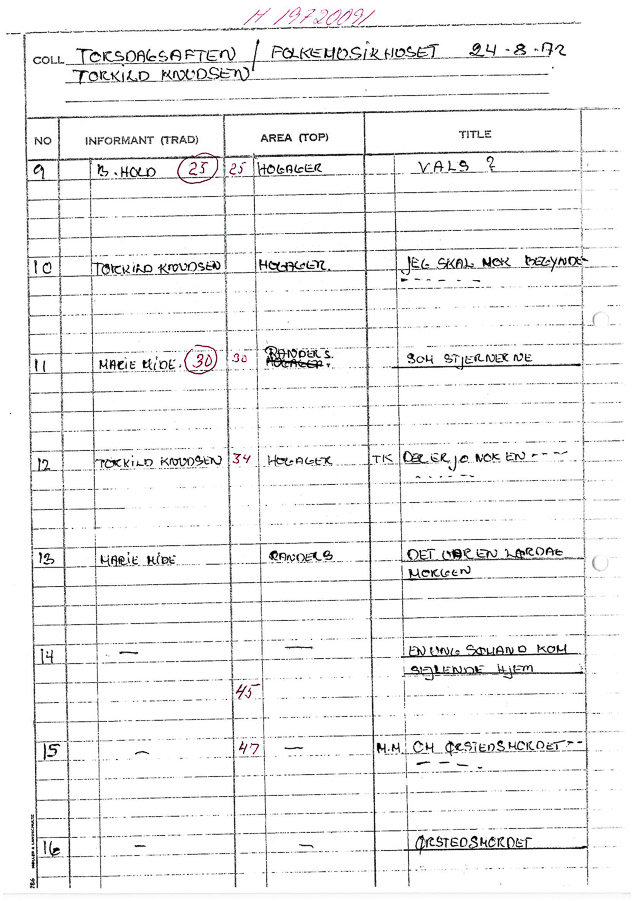 H 19720091
COLL TORSDAGSAFTEN / FOLKEMUSIKHUSET 24-8-72
TORKILD KNUDSEN
NO INFORMANT (TRAD) AREA (TOP) TITLE
9 B. HOLD 25 25 HOGAGER VALS ?
10 TORKILD KNUDSEN HOGAGER. JEG SKAL NOK BEGYNDE-
- - - - - -
11 MARIE MIDE. 30 30 RANDERS. SOM STJERNERNE
HOGAGER.
12 TORKILD KNUDSEN 34 HOGAGER TK DER ER JO NOK EN - - - -
- - - - - -
13 MARIE MIDE RANDERS DET VAR EN LØRDAG
MORGEN
14 — — EN UNG SØMAND KOM
SEJLENDE HJEM
45
15 — 47 — M.M OM ØRSTEDSMORDET - -
- - - - -
16 — — ØRSTEDSMORDET